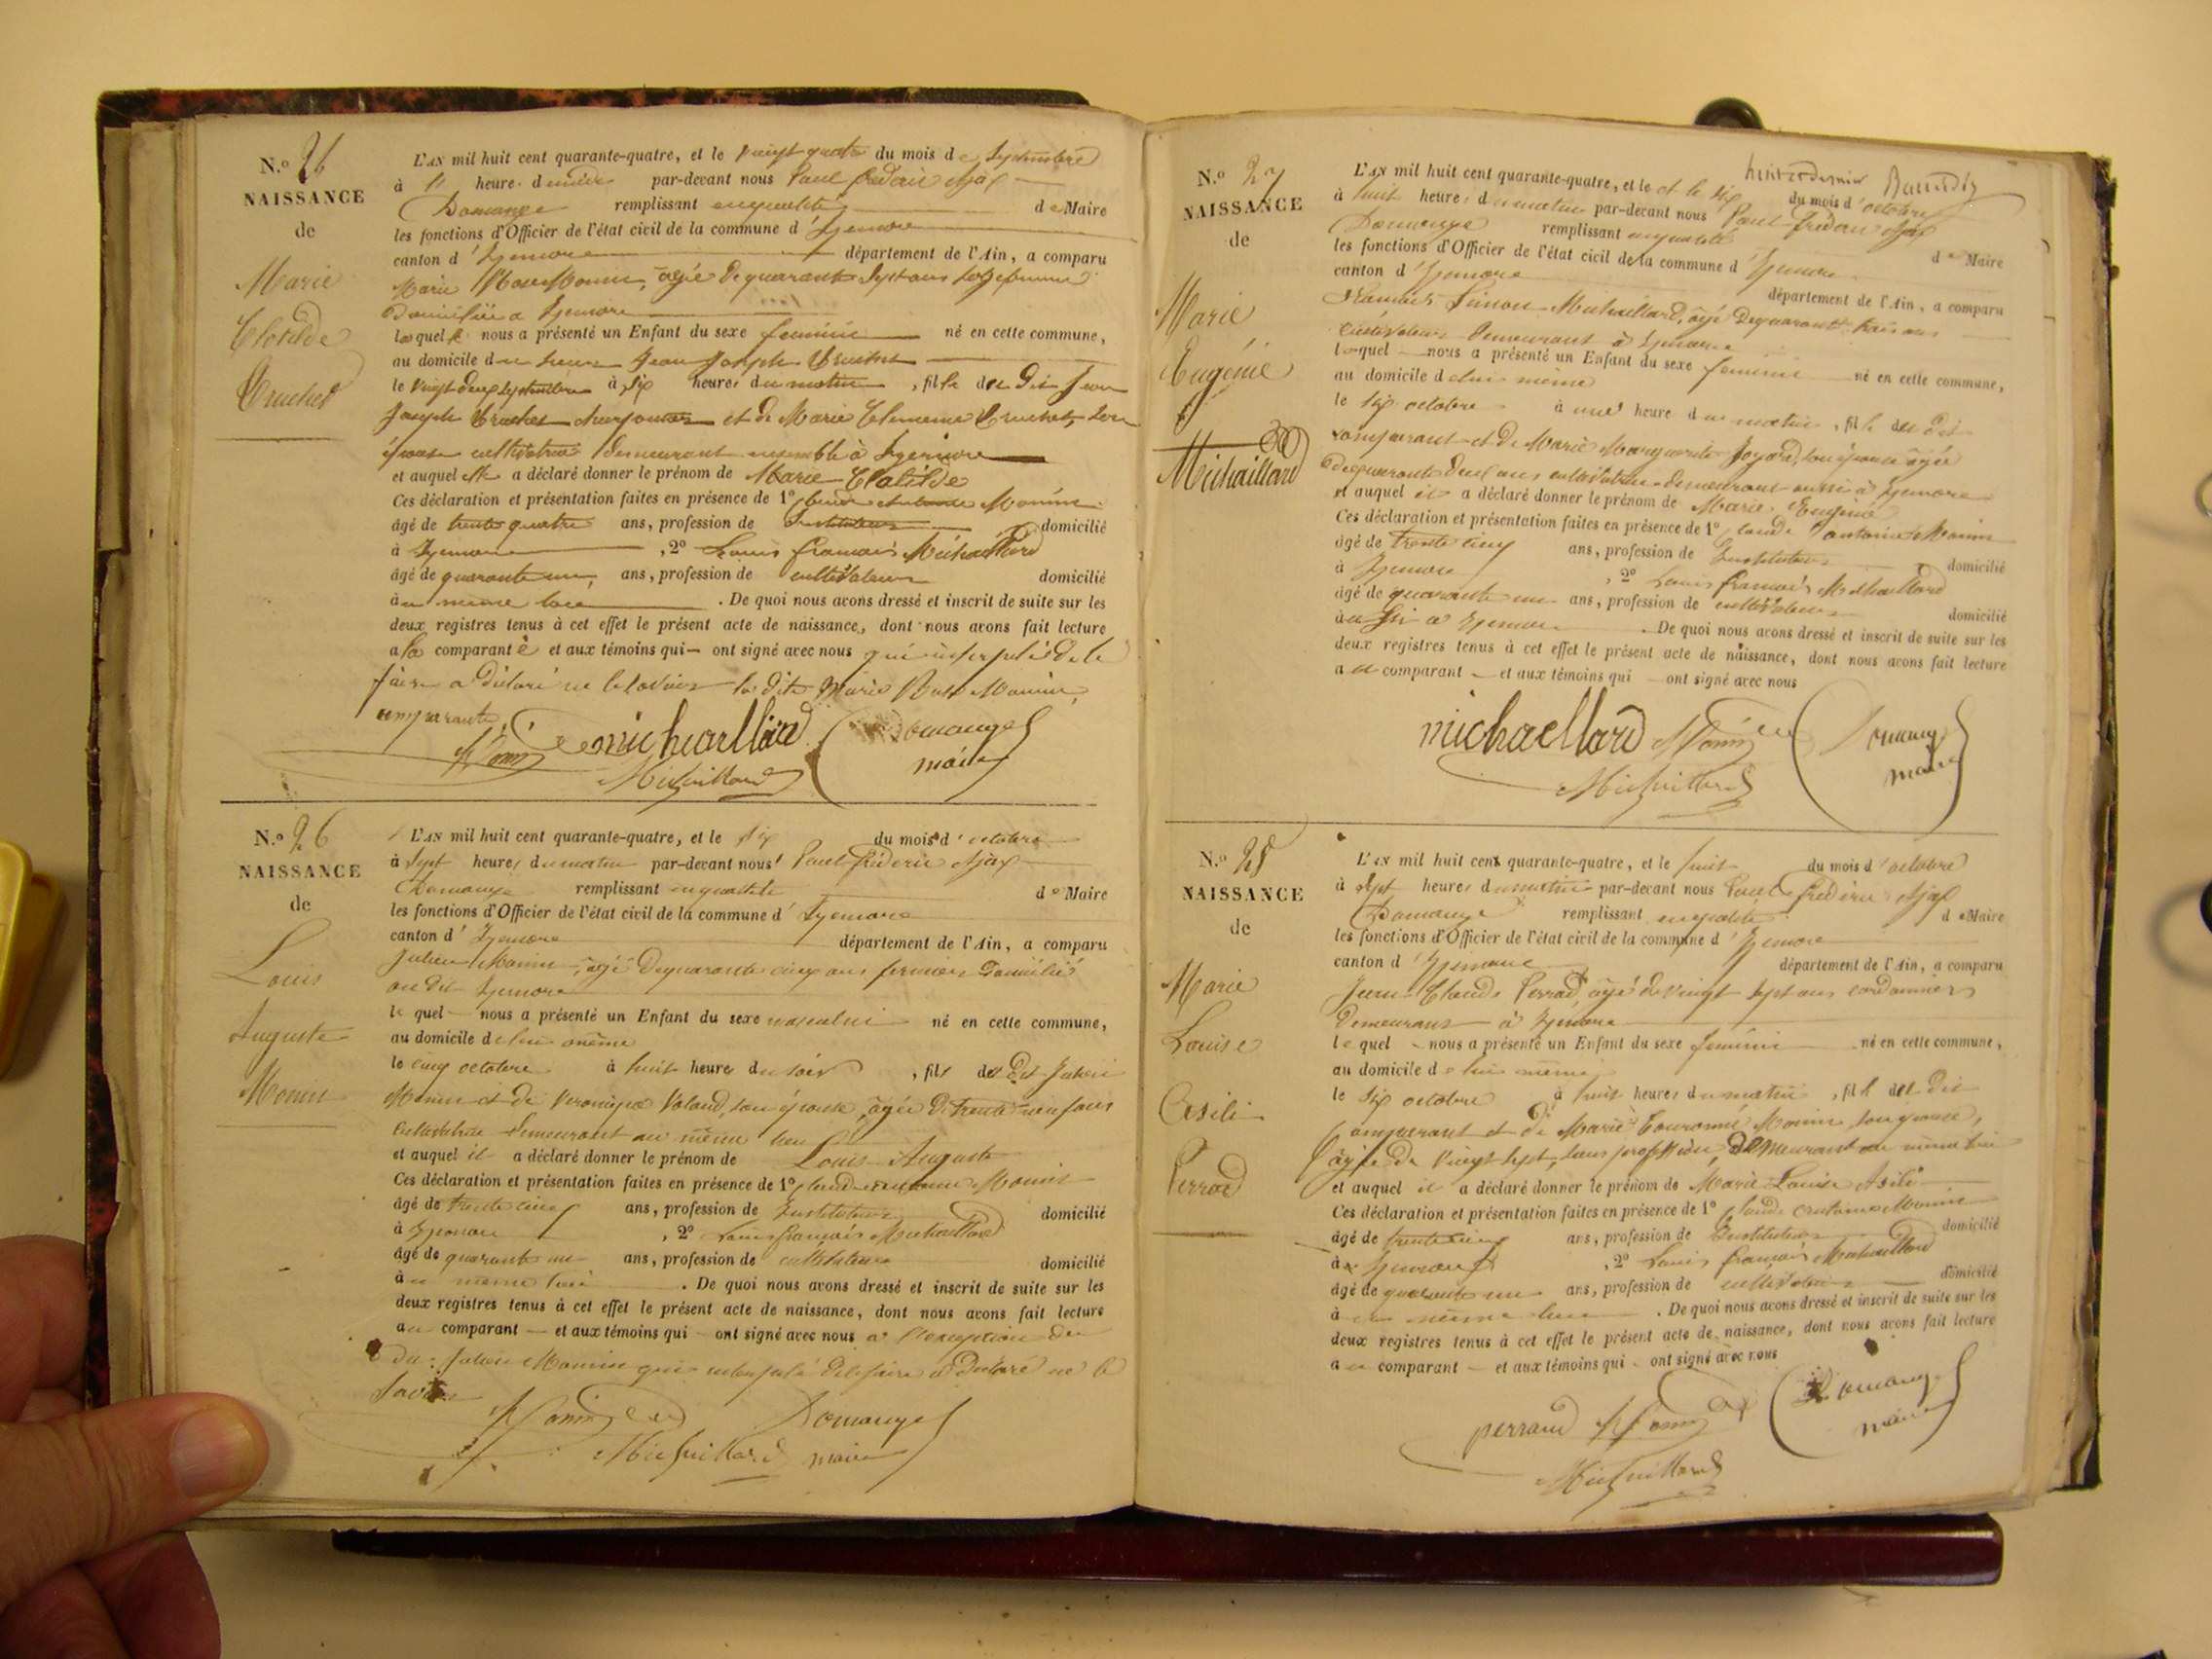 N.o 26
NAISSANCE
de
Marie
Clotilde
Cruchet
L'AN mil huit cent quarante-quatre, et le vingt quatre du mois de Septembre
à heure de par-devant nous Paul frédéric Ajax
Domange remplissant en qualité de Maire
les fonctions d'Officier de l'état civil de la commune d'Izernore
canton d'Izernore département de l'Ain, a comparu
Marie Rose Monin, agée de quarante Sept ans Sage femme
Domiciliée a Izernore
laquelle nous a présenté un Enfant du sexe féminin né en cette commune,
au domicile du Sieur Jean Joseph Cruchet
le vingt deux septembre à six heures du matin, fille du dit Jean
Joseph Cruchet et de Marie Clemence Cruchet, Son
épouse cultivatrice demeurant ensemble à Izernore
et auquel elle a déclaré donner le prénom de Marie Clotilde
Ces déclaration et présentation faites en présence de 1o Claude antoine Monin
âgé de trente quatre ans, profession de Instituteur domicilié
à Izernore, 2o Louis françois Michaillard
âgé de quarante un, ans, profession de cultivateur domicilié
au même lieu. De quoi nous avons dressé et inscrit de suite sur les
deux registres tenus à cet effet le présent acte de naissance, dont nous avons fait lecture
a la comparante et aux témoins qui ont signé avec nous qui interpelée de le
faire a déclaré ne le savoir la dite Marie Rose Monin
comparante.
Monin michaillard Domange
Michaillard maire
N.o 26
NAISSANCE
de
Louis
Auguste
Monin
L'AN mil huit cent quarante-quatre, et le six du mois d'octobre
à sept heures du matin par-devant nous Paul frédéric Ajax
Domange remplissant en qualité de Maire
les fonctions d'Officier de l'état civil de la commune d'Izernore
canton d'Izernore département de l'Ain, a comparu
Julien Monin, agé de quarante cinq ans fermier Domicilié
au dit Izernore
lequel nous a présenté un Enfant du sexe masculin né en cette commune,
au domicile de lui même
le cinq octobre à huit heures du soir, fils du dit Julien
Monin et de Veronique Voland, son épouse, agée de trente neuf ans
cultivatrice demeurant au même lieu
et auquel il a déclaré donner le prénom de Louis Auguste
Ces déclaration et présentation faites en présence de 1o Claude antoine Monin
âgé de trente cinq ans, profession de Instituteur domicilié
à Izernore, 2o Louis françois Michaillard
âgé de quarante un ans, profession de cultivateur domicilié
au même lieu. De quoi nous avons dressé et inscrit de suite sur les
deux registres tenus à cet effet le présent acte de naissance, dont nous avons fait lecture
au comparant et aux témoins qui ont signé avec nous a l'exception du
du: Julien Monin qui interpelé de le faire a déclaré ne le
savoir
Monin Domange
Michaillard maire
N.o 27
NAISSANCE
de
Marie
Eugénie
Michaillard
L'AN mil huit cent quarante-quatre, et le et le six du mois d'octobre
à huit heures du matin par-devant nous Paul frédéric Ajax
Domange remplissant en qualité de Maire
les fonctions d'Officier de l'état civil de la commune d'Izernore
canton d'Izernore département de l'Ain, a comparu
François Simon Michaillard, agé de quarante trois ans
cultivateur demeurant à Izernore
lequel nous a présenté un Enfant du sexe féminin né en cette commune,
au domicile de lui même
le six octobre à une heure du matin, fille du dit
comparant et de Marie Marguerite Joyard, son épouse agée
de quarante deux ans cultivatrice demeurant aussi à Izernore
et auquel il a déclaré donner le prénom de Marie Eugénie
Ces déclaration et présentation faites en présence de 1o Claude antoine Monin
âgé de trente cinq ans, profession de Instituteur domicilié
à Izernore, 2o Louis françois Michaillard
âgé de quarante un ans, profession de cultivateur domicilié
aussi a Izernore. De quoi nous avons dressé et inscrit de suite sur les
deux registres tenus à cet effet le présent acte de naissance, dont nous avons fait lecture
au comparant et aux témoins qui ont signé avec nous
michaellard Monin Domange
Michaillard maire
N.o 28
NAISSANCE
de
Marie
Louise
Asili
Perrod
L'AN mil huit cent quarante-quatre, et le huit du mois d'octobre
à sept heures du matin par-devant nous Paul frédéric Ajax
Domange remplissant en qualité de Maire
les fonctions d'Officier de l'état civil de la commune d'Izernore
canton d'Izernore département de l'Ain, a comparu
Jean Claude Perrod, agé de vingt sept ans cordonnier
Demeurant à Izernore
lequel nous a présenté un Enfant du sexe féminin né en cette commune,
au domicile de lui même
le six octobre à huit heures du matin, fille du dit
comparant et de Marie Monin son épouse,
agée de vingt sept, sans profession, demeurant au même lieu
et auquel il a déclaré donner le prénom de Marie Louise Asili
Ces déclaration et présentation faites en présence de 1o Claude antoine Monin
âgé de trente cinq ans, profession de Instituteur domicilié
à Izernore, 2o Louis françois Michaillard
âgé de quarante un ans, profession de cultivateur domicilié
au même lieu. De quoi nous avons dressé et inscrit de suite sur les
deux registres tenus à cet effet le présent acte de naissance, dont nous avons fait lecture
au comparant et aux témoins qui ont signé avec nous
perraud Monin Domange
Michaillard maire